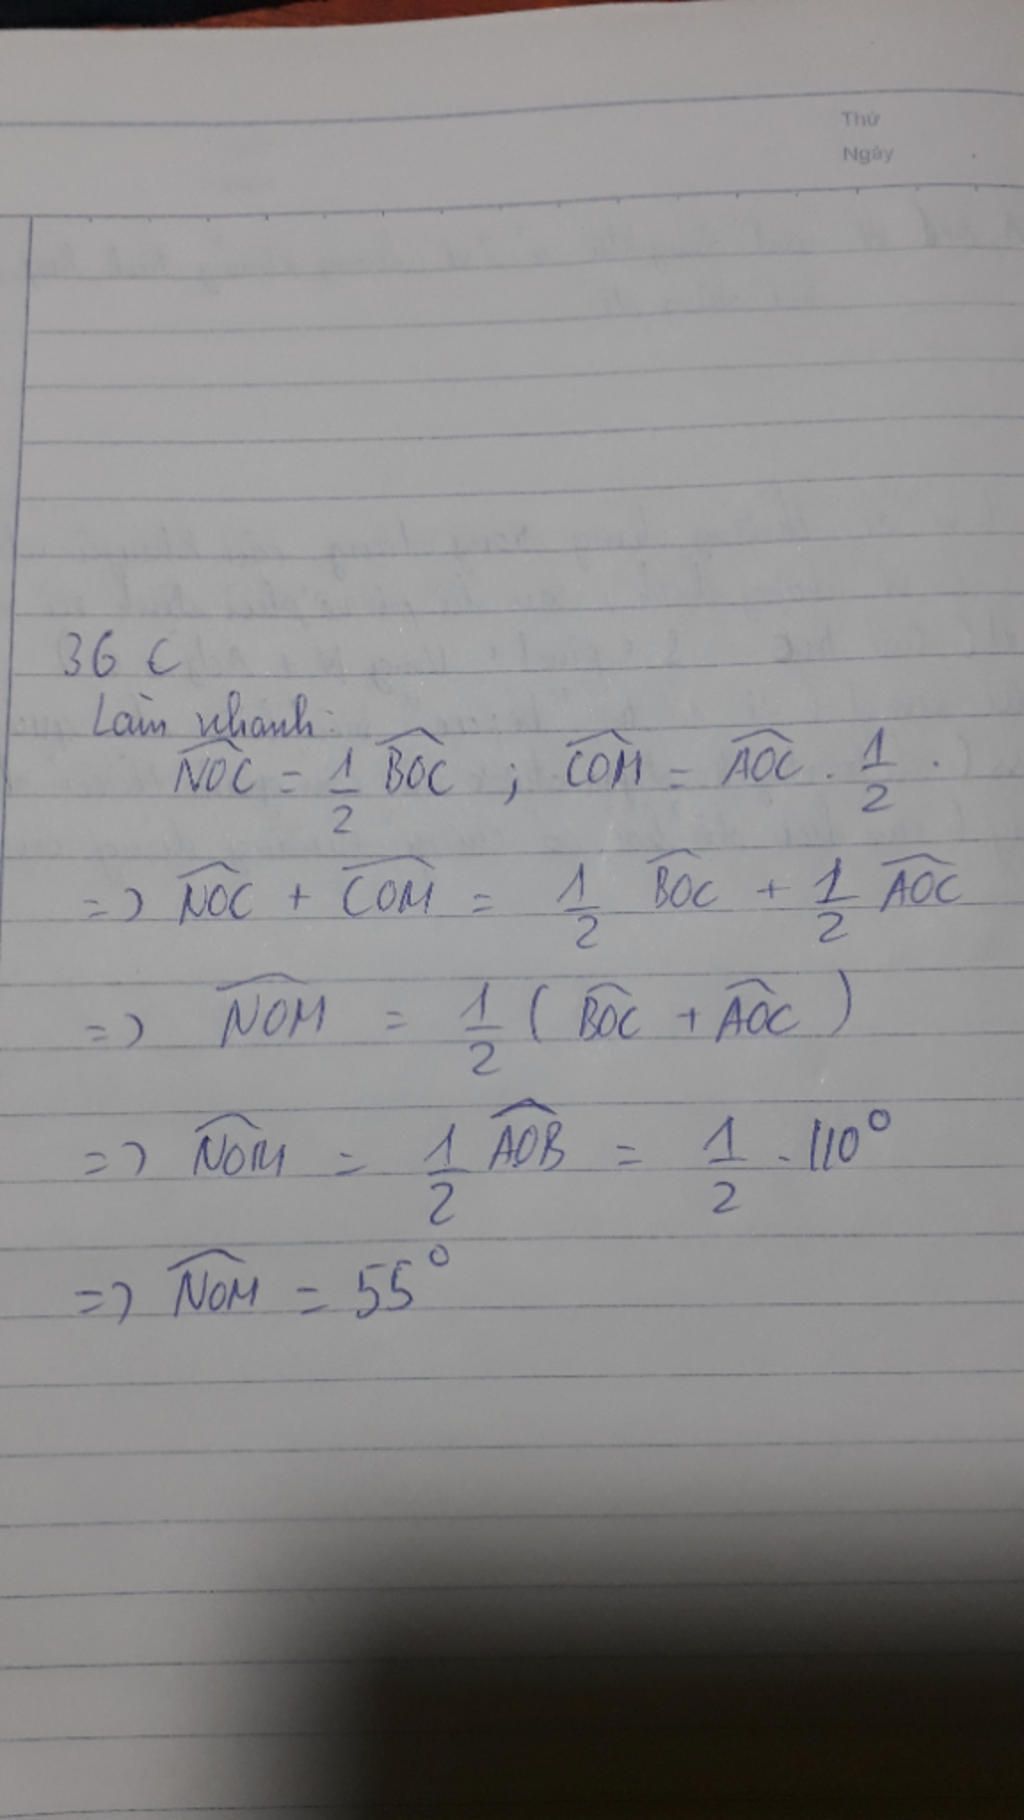 Thứ
Ngày
36 C
Làm nhanh:
$\widehat{NOC} = \frac{1}{2} \widehat{BOC}$ ; $\widehat{COM} = \widehat{AOC} . \frac{1}{2}$ .
=> $\widehat{NOC} + \widehat{COM} = \frac{1}{2} \widehat{BOC} + \frac{1}{2} \widehat{AOC}$
=> $\widehat{NOM} = \frac{1}{2} ( \widehat{BOC} + \widehat{AOC} )$
=> $\widehat{NOM} = \frac{1}{2} \widehat{AOB} = \frac{1}{2} . 110^0$
=> $\widehat{NOM} = 55^0$